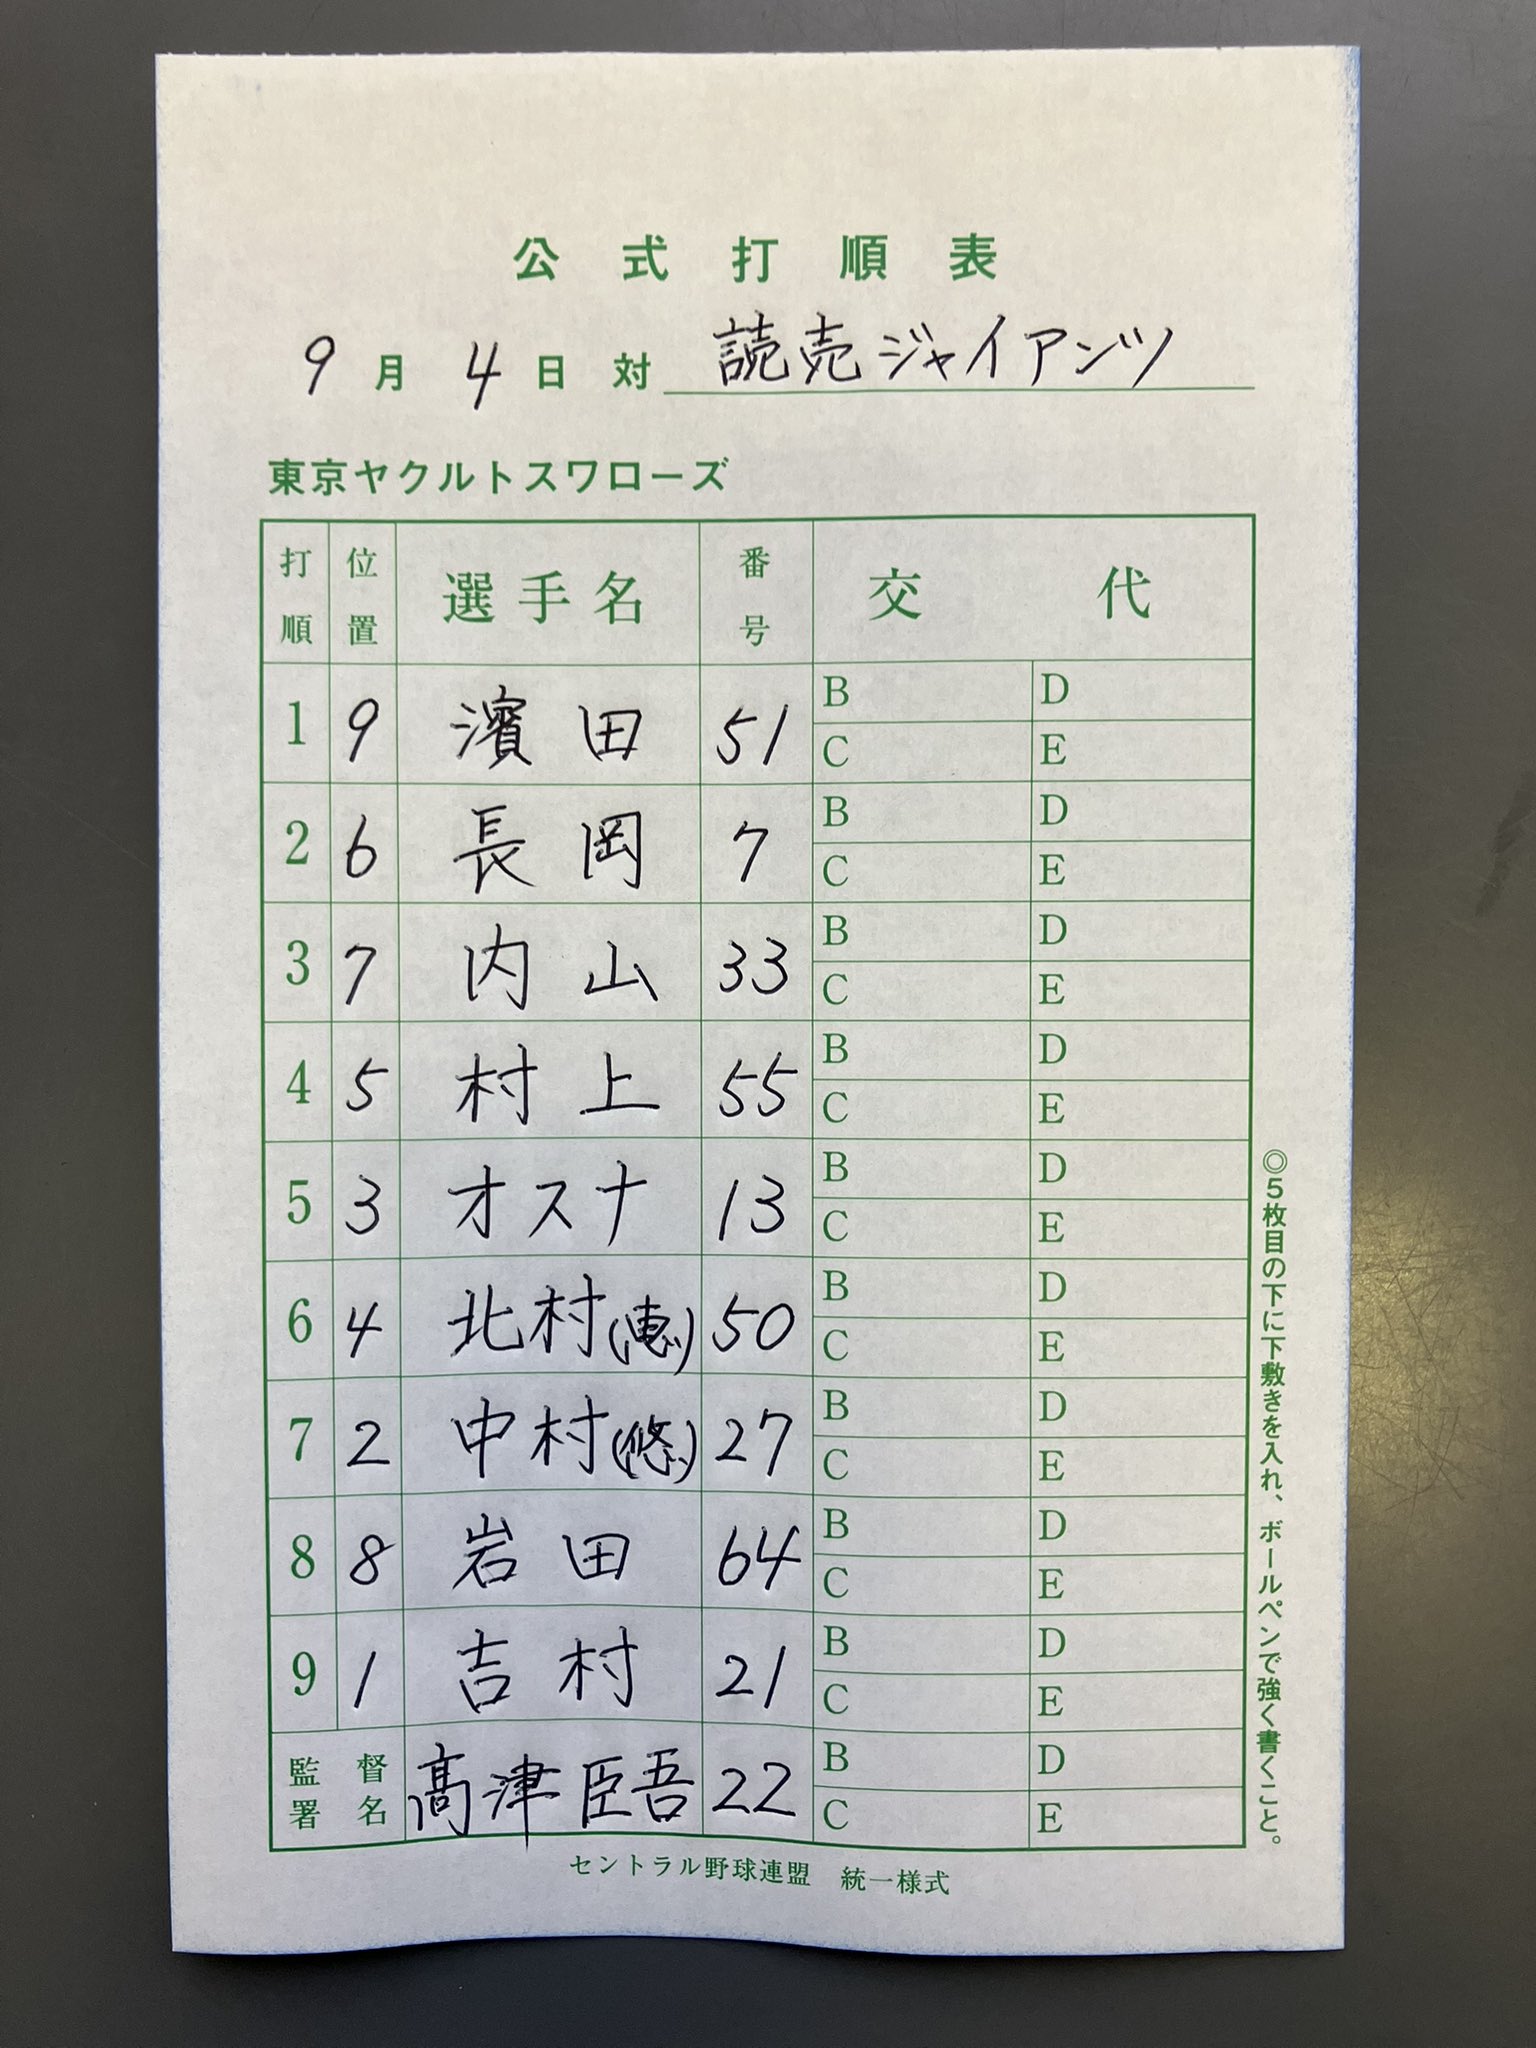 公式打順表
9月4日 対 読売ジャイアンツ
東京ヤクルトスワローズ
打順 位置 選手名 番号 交代
1 9 濱田 51 B D
C E
2 6 長岡 7 B D
C E
3 7 内山 33 B D
C E
4 5 村上 55 B D
C E
5 3 オスナ 13 B D
C E
6 4 北村(恵) 50 B D
C E
7 2 中村(悠) 27 B D
C E
8 8 岩田 64 B D
C E
9 1 吉村 21 B D
C E
監督署名 髙津臣吾 22 B D
C E
セントラル野球連盟 統一様式
◎5枚目の下に下敷きを入れ、ボールペンで強く書くこと。